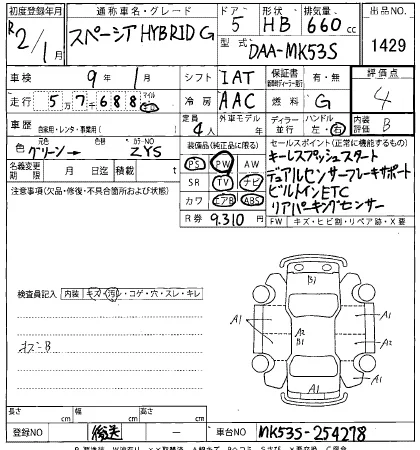 初度登録年月 通称車名・グレード ドア 形状 排気量 出品NO
R2/1月 スペーシアHYBRID G 5 HB 660cc 1429
型式 DAA-MK53S
車検 9年1月 シフト IAT 保証書 有・無 評価点
走行 57688 マイル km 冷房 AAC 燃料 G 4
車歴 自家用・レンタ・事業用( ) 定員 4人 外車モデル 年 ディーラー 並行 ハンドル 左・右 内装評価 B
色 元色 グリーン→ 色替 カラーNO ZYS
装備品(純正品に限る) セールスポイント(正常に機能するもの)
名義変更期限 月 日 積載 t
PS PW AW キーレスプッシュスタート
注意事項(欠品・修復・不具合箇所および状態)
SR TV ナビ デュアルセンサーブレーキサポート
カワ エアB ABS ビルトインETC
R券 9,310円 リアパーキングセンサー
FW キズ・ヒビ割・リペア跡・X要
検査員記入 内装 キズ・汚れ・コゲ・穴・スレ・キレ
B1
A1 A1
A2
B1
A1 A2
A1
キズB
長さ cm 幅 cm 高さ cm
登録NO 後送 ー 車台NO MK53S-254278